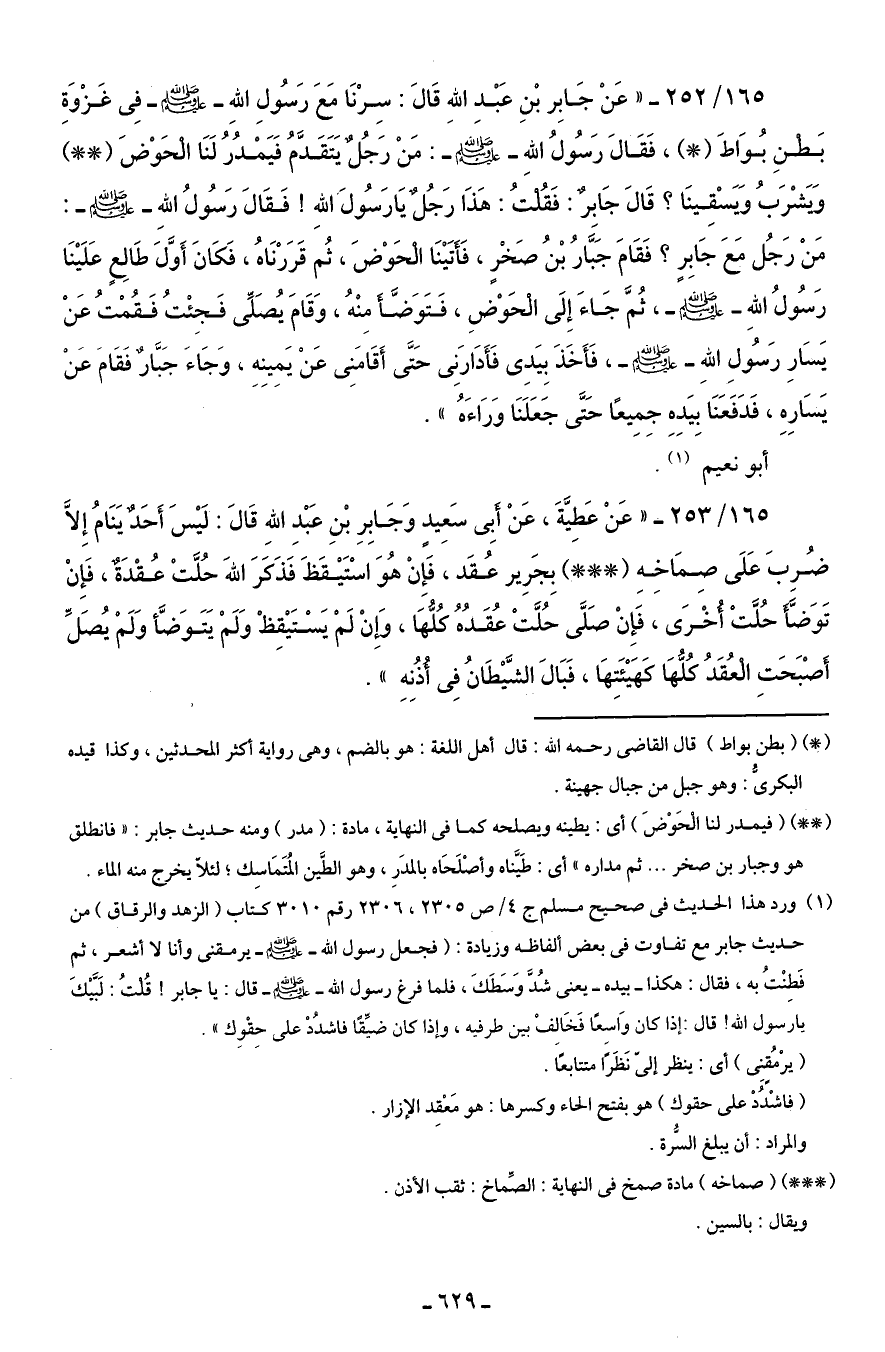 ١٦٥/ ٢٥٢ ـ « عَنْ جَابِرِ بْنِ عَبْدِ اللهِ قَالَ : سِرْنَا مَعَ رَسُولِ اللهِ ـ ﷺ ـ فِى غَزْوَةِ
بَطْنِ بُوَاطَ (*) ، فَقَالَ رَسُولُ اللهِ ـ ﷺ ـ : مَنْ رَجُلٌ يَتَقَدَّمُ فَيَمْدُرُ لَنَا الْحَوْضَ (**)
وَيَشْرَبُ وَيَسْقِينَا ؟ قَالَ جَابِرٌ : فَقُلْتُ : هَذَا رَجُلٌ يَارَسُولَ اللهِ ! فَقَالَ رَسُولُ اللهِ ـ ﷺ ـ :
مَنْ رَجُلٌ مَعَ جَابِرٍ ؟ فَقَامَ جَبَّارُ بْنُ صَخْرٍ ، فَأَتَيْنَا الْحَوْضَ ، ثُم قَرَرْنَاهُ ، فَكَانَ أَوَّلَ طَالِعٍ عَلَيْنَا
رَسُولُ اللهِ ـ ﷺ ـ ، ثُمَّ جَاءَ إِلَى الْحَوْضِ ، فَتَوَضَّأَ مِنْهُ ، وَقَامَ يُصَلِّى فَجِئْتُ فَقُمْتُ عَنْ
يَسَارِ رَسُولِ اللهِ ـ ﷺ ـ ، فَأَخَذَ بِيَدِى فَأَدَارَنِى حَتَّى أَقَامَنِى عَنْ يَمِينِهِ ، وَجَاءَ جَبَّارٌ فَقَامَ عَنْ
يَسَارِهِ ، فَدَفَعَنَا بِيَدِهِ جَمِيعًا حَتَّى جَعَلَنَا وَرَاءَهُ » .
أبو نعيم (١) .
١٦٥/ ٢٥٣ ـ « عَنْ عَطِيَّةَ ، عَنْ أَبِى سَعِيدٍ وَجَابِرِ بْنِ عَبْدِ اللهِ قَالَ : لَيْسَ أَحَدٌ يَنَامُ إِلاَّ
ضُرِبَ عَلَى صِمَاخِهِ (***) بِجَرِيرِ عُقَدٍ ، فَإِنْ هُوَ اسْتَيْقَظَ فَذَكَرَ اللهَ حُلَّتْ عُقْدَةٌ ، فَإِنْ
تَوَضَّأَ حُلَّتْ أُخْرَى ، فَإِنْ صَلَّى حُلَّتْ عُقَدُهُ كُلُّهَا ، وَإِنْ لَمْ يَسْتَيْقِظْ وَلَمْ يَتَوَضَّأ وَلَمْ يُصَلِّ
أَصْبَحَتِ الْعُقَدُ كُلُّهَا كَهَيْئَتِهَا ، فَبَالَ الشَّيْطَانُ فِى أُذُنِهِ » .
(*) ( بطن بواط ) قال القاضى رحمه الله : قال أهل اللغة : هو بالضم ، وهى رواية أكثر المحدثين ، وكذا قيده
البكرىُّ : وهو جبل من جبال جهينة .
(**) ( فيمدر لنا الْحَوْضَ ) أى : يطينه ويصلحه كما فى النهاية ، مادة : ( مدر ) ومنه حديث جابر : « فانطلق
هو وجبار بن صخر ... ثم مداره » أى : طَيَّناه وأصْلَحَاه بالمدَرِ ، وهو الطِّين المُتَمَاسك ؛ لئلاّ يخرج منه الماء .
(١) ورد هذا الحديث فى صحيح مسلم ج ٤/ ص ٢٣٠٥ ، ٢٣٠٦ رقم ٣٠١٠ كتاب ( الزهد والرقاق ) من
حديث جابر مع تفاوت فى بعض ألفاظه وزيادة : ( فجعل رسول الله ـ ﷺ ـ يرمقنى وأنا لا أشعر ، ثم
فَطِنْتُ به ، فقال : هكذا ـ بيده ـ يعنى شُدَّ وَسَطَكَ ، فلما فرغ رسول الله ـ ﷺ ـ قال : يا جابر ! قُلْتُ : لَبَّيْكَ
يارسول الله! قال :إذا كان وَاسعًا فَخَالفْ بين طرفيه ، وإذا كان ضيِّقًا فاشدُدْ على حقْوِك » .
( يرْمُقنِى ) أى : ينظر إلىّ نَظَرًا متتابعًا .
( فاشْدُدْ على حقوك ) هو بفتح الحاء وكسرها : هو مَعْقِد الإزار .
والمراد : أن يبلغ السُّرة .
(***) ( صماخه ) مادة صمخ فى النهاية : الصِّماخ : ثقب الأذن .
ويقال : بالسين .
ـ ٦٢٩ ـ